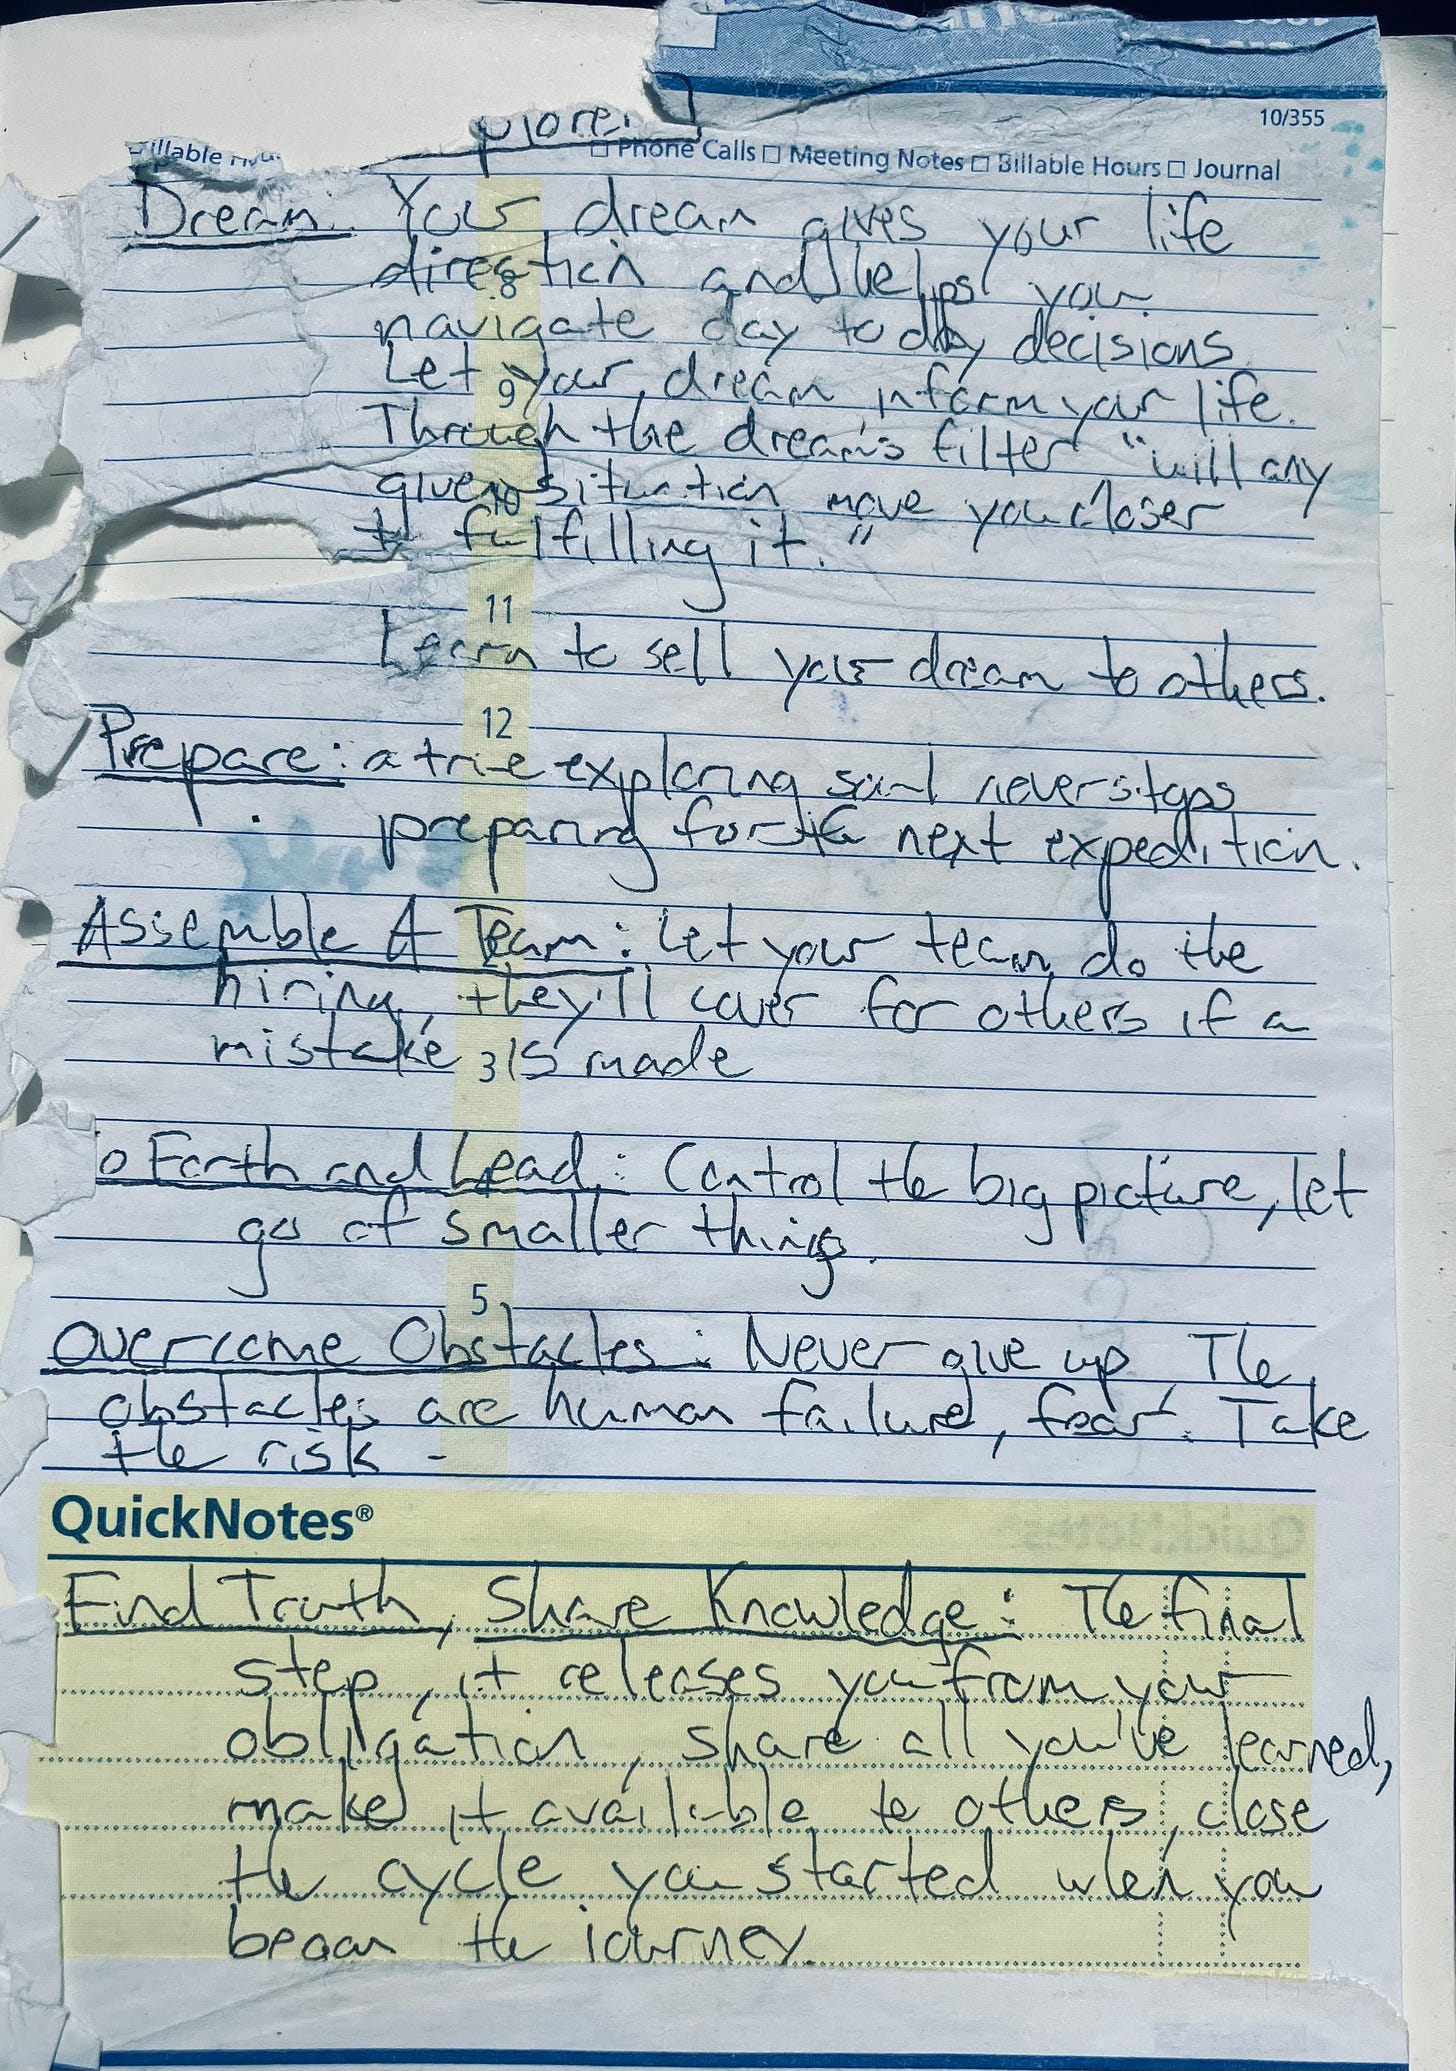 plore.
10/355
illable
□ Phone Calls □ Meeting Notes □ Billable Hours □ Journal
Dream: Your dream gives your life
direction and helps you
8
navigate day to day decisions
Let your dream inform your life.
9
Through the dream's filter "will any
given situation move you closer
10
to fulfilling it."
11
Learn to sell your dream to others.
12
Prepare: a true exploring soul never stops
preparing for the next expedition.
Assemble A Team: Let your team do the
hiring, they'll cover for others if a
mistake is made
3
o Forth and Lead: Control the big picture, let
4
go of smaller things.
5
Overcome Obstacles: Never give up. The
obstacles are human failure, fear. Take
the risk -
QuickNotes®
Find Truth, Share Knowledge: The final
step, it releases you from your
obligation, share all you've learned,
make it available to others, close
the cycle you started when you
began the journey.